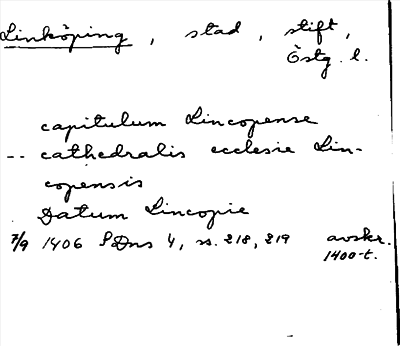 Linköping, stad, stift,
Östg. l.
capitulum Lincopense
-- cathedralis ecclesie Lin-
copensis
Datum Lincopie
7/9 1406 SDns 4, ss. 218, 219 avskr.
1400-t.